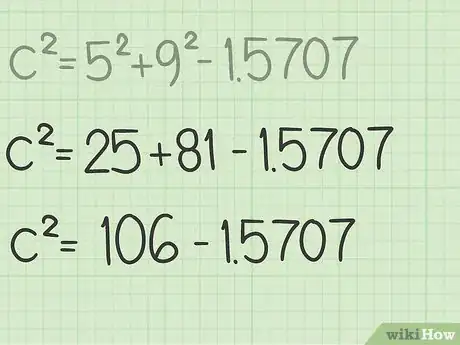 C²=5²+9²-1.5707
C²=25+81-1.5707
C²=106-1.5707
wikiHow